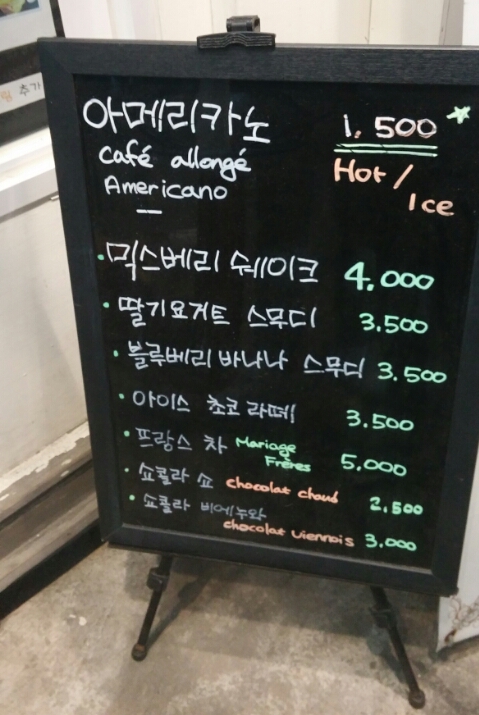 추가
아메리카노 1.500
café allongé Hot /
Americano Ice
믹스베리 쉐이크 4.000
딸기요거트 스무디 3.500
블루베리 바나나 스무디 3.500
아이스 초코 라떼 3.500
프랑스 차 Mariage Frères 5.000
쇼콜라 쇼 chocolat chaud 2.500
쇼콜라 비에누와 chocolat viennois 3.000